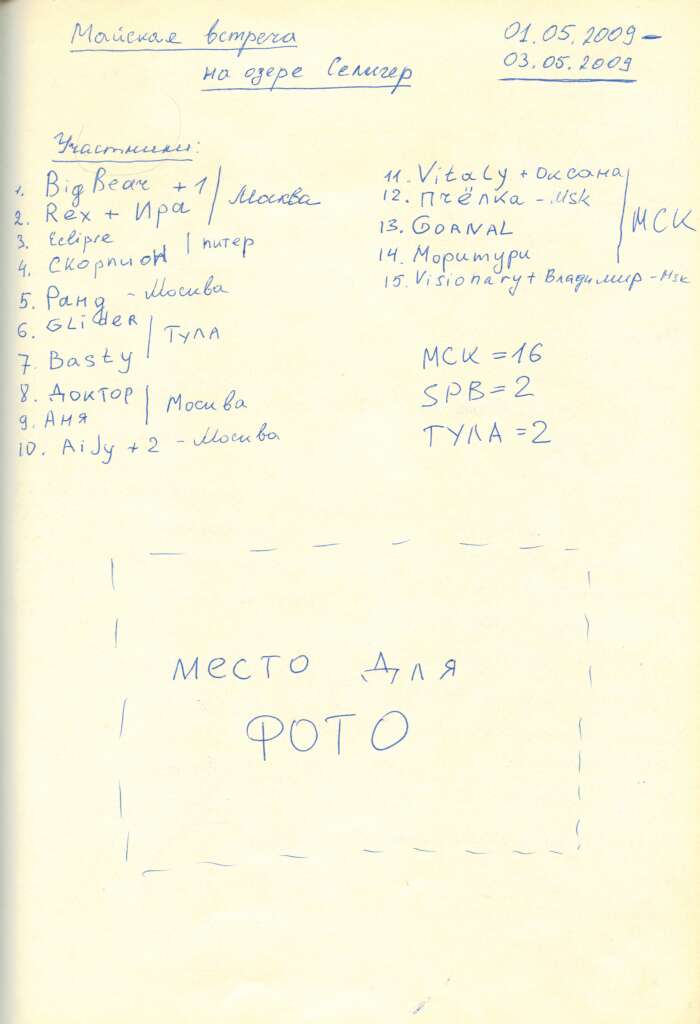 Майская встреча
на озере Селигер
01.05.2009 –
03.05.2009
Участники:
1. BigBear + 1
2. Rex + Ира
Москва
3. Eclipse
4. Скорпион
питер
5. Ранд - Москва
6. GLideR
7. Basty
ТУЛА
8. Доктор
9. Аня
Москва
10. AiJy + 2 - Москва
11. Vitaly + Оксана
12. Пчёлка - Msk
13. GORNAL
14. Моритури
МСК
15. Visionary + Владимир - Msk
МСК = 16
SPB = 2
ТУЛА = 2
место для
ФОТО